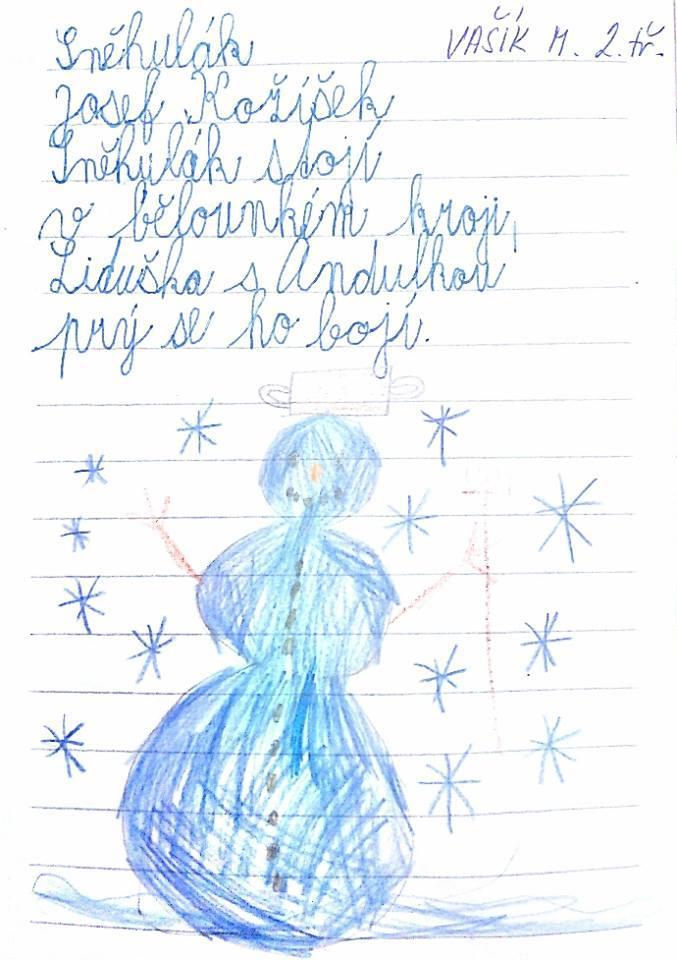 Sněhulák
VAŠÍK M. 2. tř.
Josef Kožíšek
Sněhulák stojí
v bělounkém kroji,
Liduška s Andulkou
prý se ho bojí.